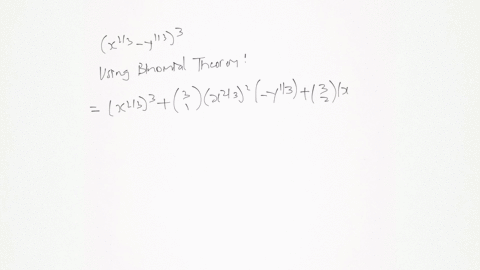 (x^{2/3} - y^{1/3})^3
Using Binomial Theorem!
= (x^{2/3})^3 + \binom{3}{1} (x^{2/3})^2 (-y^{1/3}) + \binom{3}{2} (x